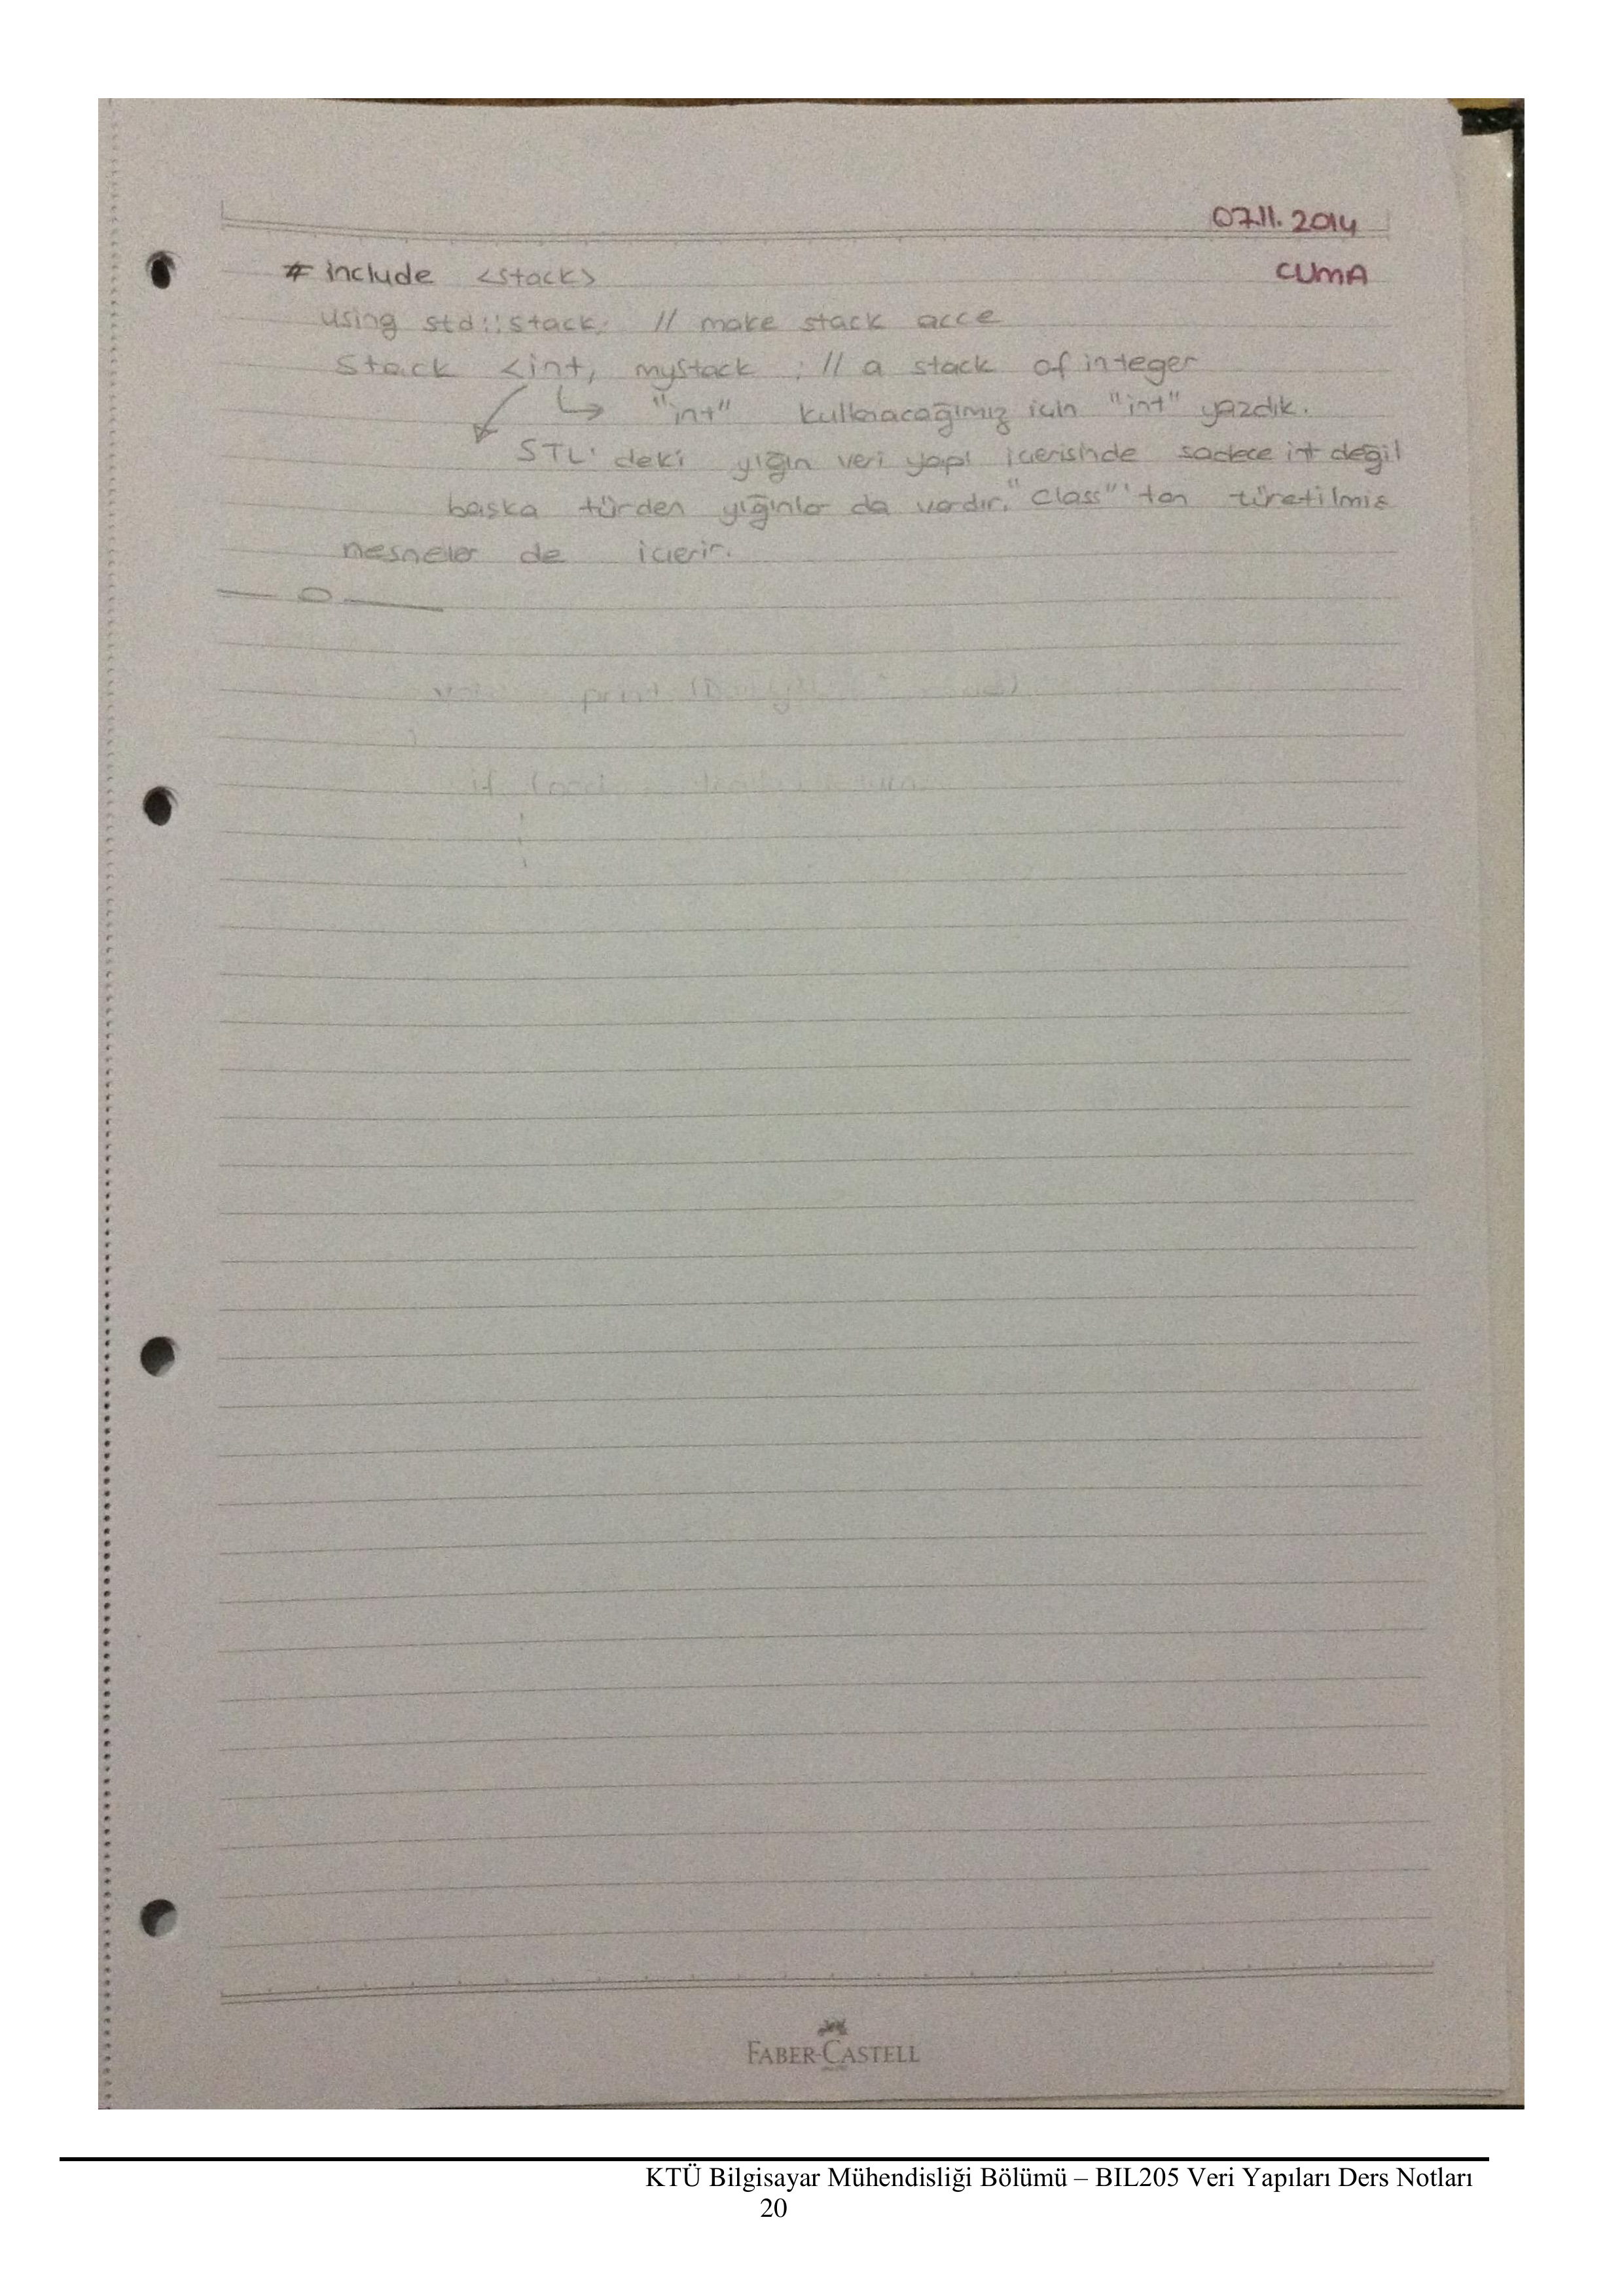 07.11.2014
# include <stack>
CUMA
using std::stack; // make stack acce
Stack <int, mystack ; // a stack of integer
"int" kullanacağımız için "int" yazdık.
STL' deki yığın veri yapı icerisinde sadece int değil
baska türden yığınlar da vardır. "Class"'tan türetilmis
nesneler de icerir.
print
if
FABER-CASTELL
KTÜ Bilgisayar Mühendisliği Bölümü – BIL205 Veri Yapıları Ders Notları
20